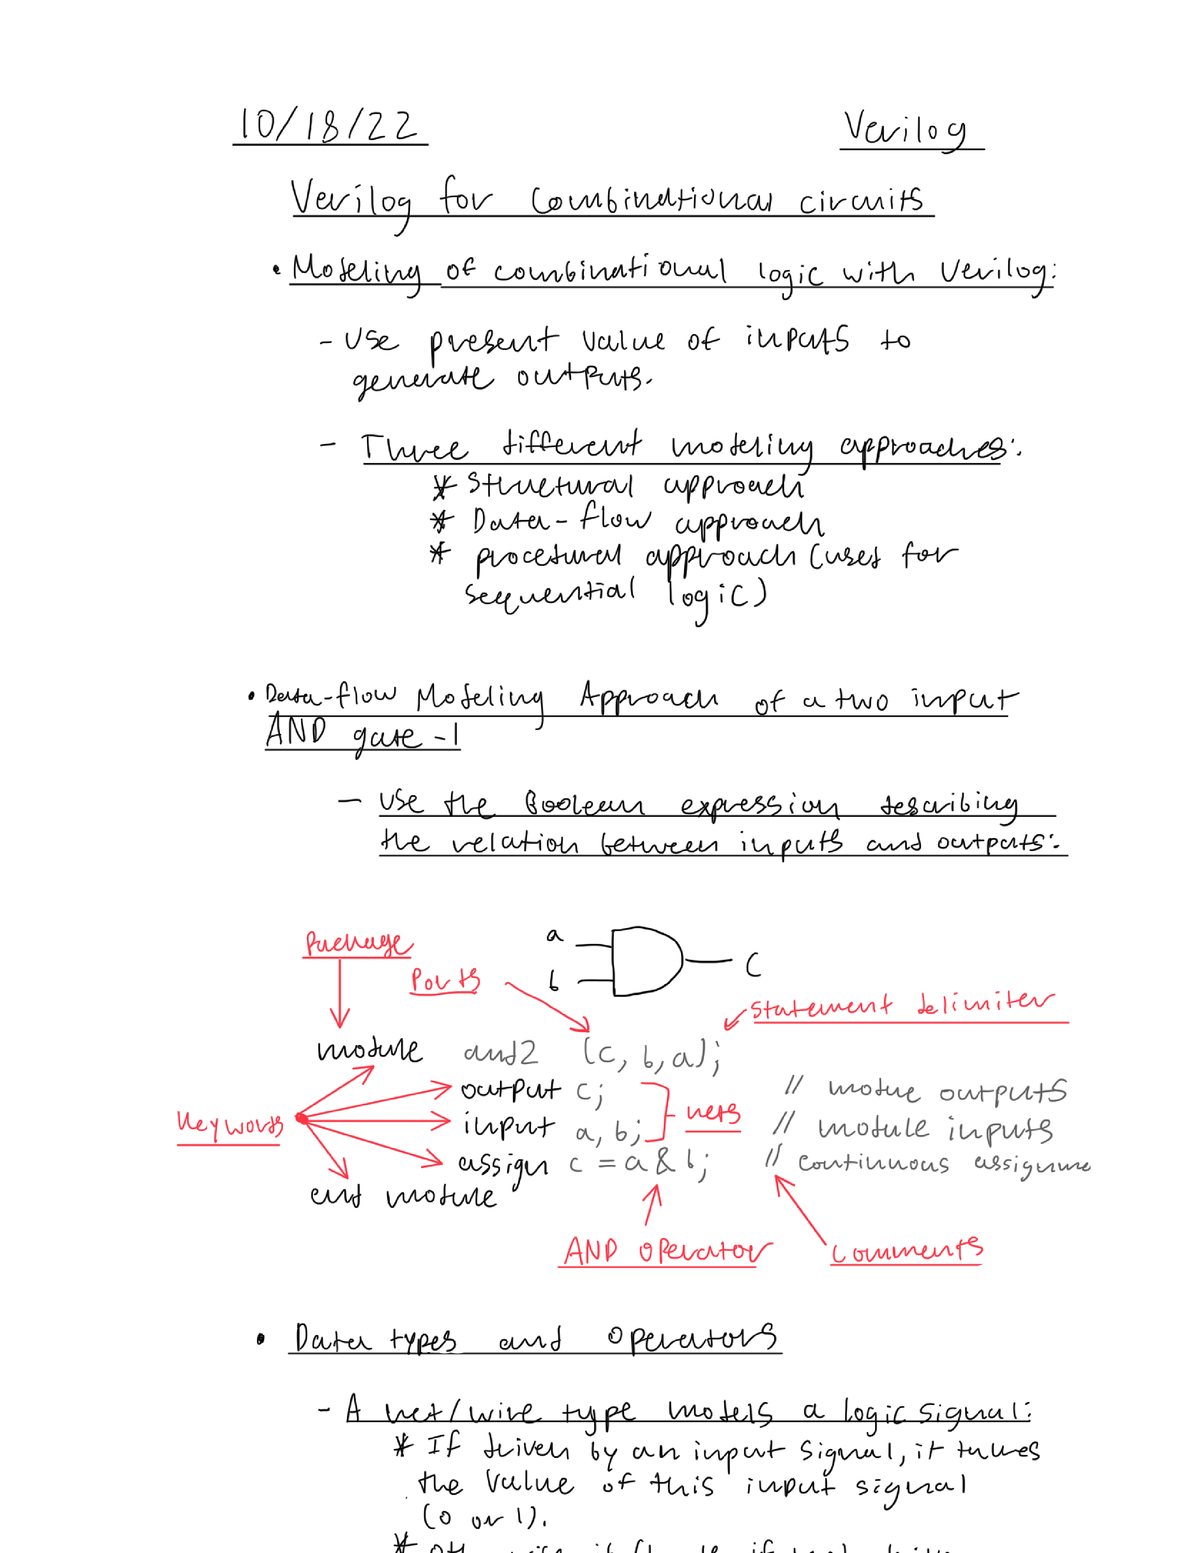 10/18/22 Verilog
Verilog for Combinational circuits
• Modeling of combinational logic with Verilog:
- Use present value of inputs to
generate outputs.
- Three different modeling approaches:
* Structural approach
* Data-flow approach
* procedural approach (used for
sequential logic)
• Data-flow Modeling Approach of a two input
AND gate -1
- Use the Boolean expression describing
the relation between inputs and outputs:
Package
a
b
C
Ports
Statement delimiter
module and2 (c, b, a);
output c; // module outputs
Keywords
input a, b; nets // module inputs
assign c = a & b; // continuous
end module
AND operator
Comments
• Data types and operators
- A net/wire type models a logic signal:
* If driven by an input signal, it takes
the value of this input signal
(0 or 1).
*